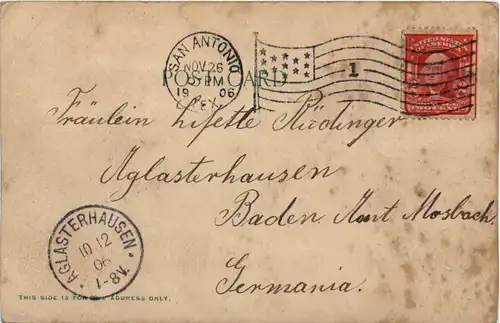 SAN ANTONIO
NOV 26
PM
1906
TEX.
1
UNITED STATES
OF AMERICA
POST CARD
Fräulein Lisette Rüdinger
Aglasterhausen
Baden Amt Mosbach.
Germania.
AGLASTERHAUSEN
10 12
06
1-8V.
THIS SIDE IS FOR THE ADDRESS ONLY.